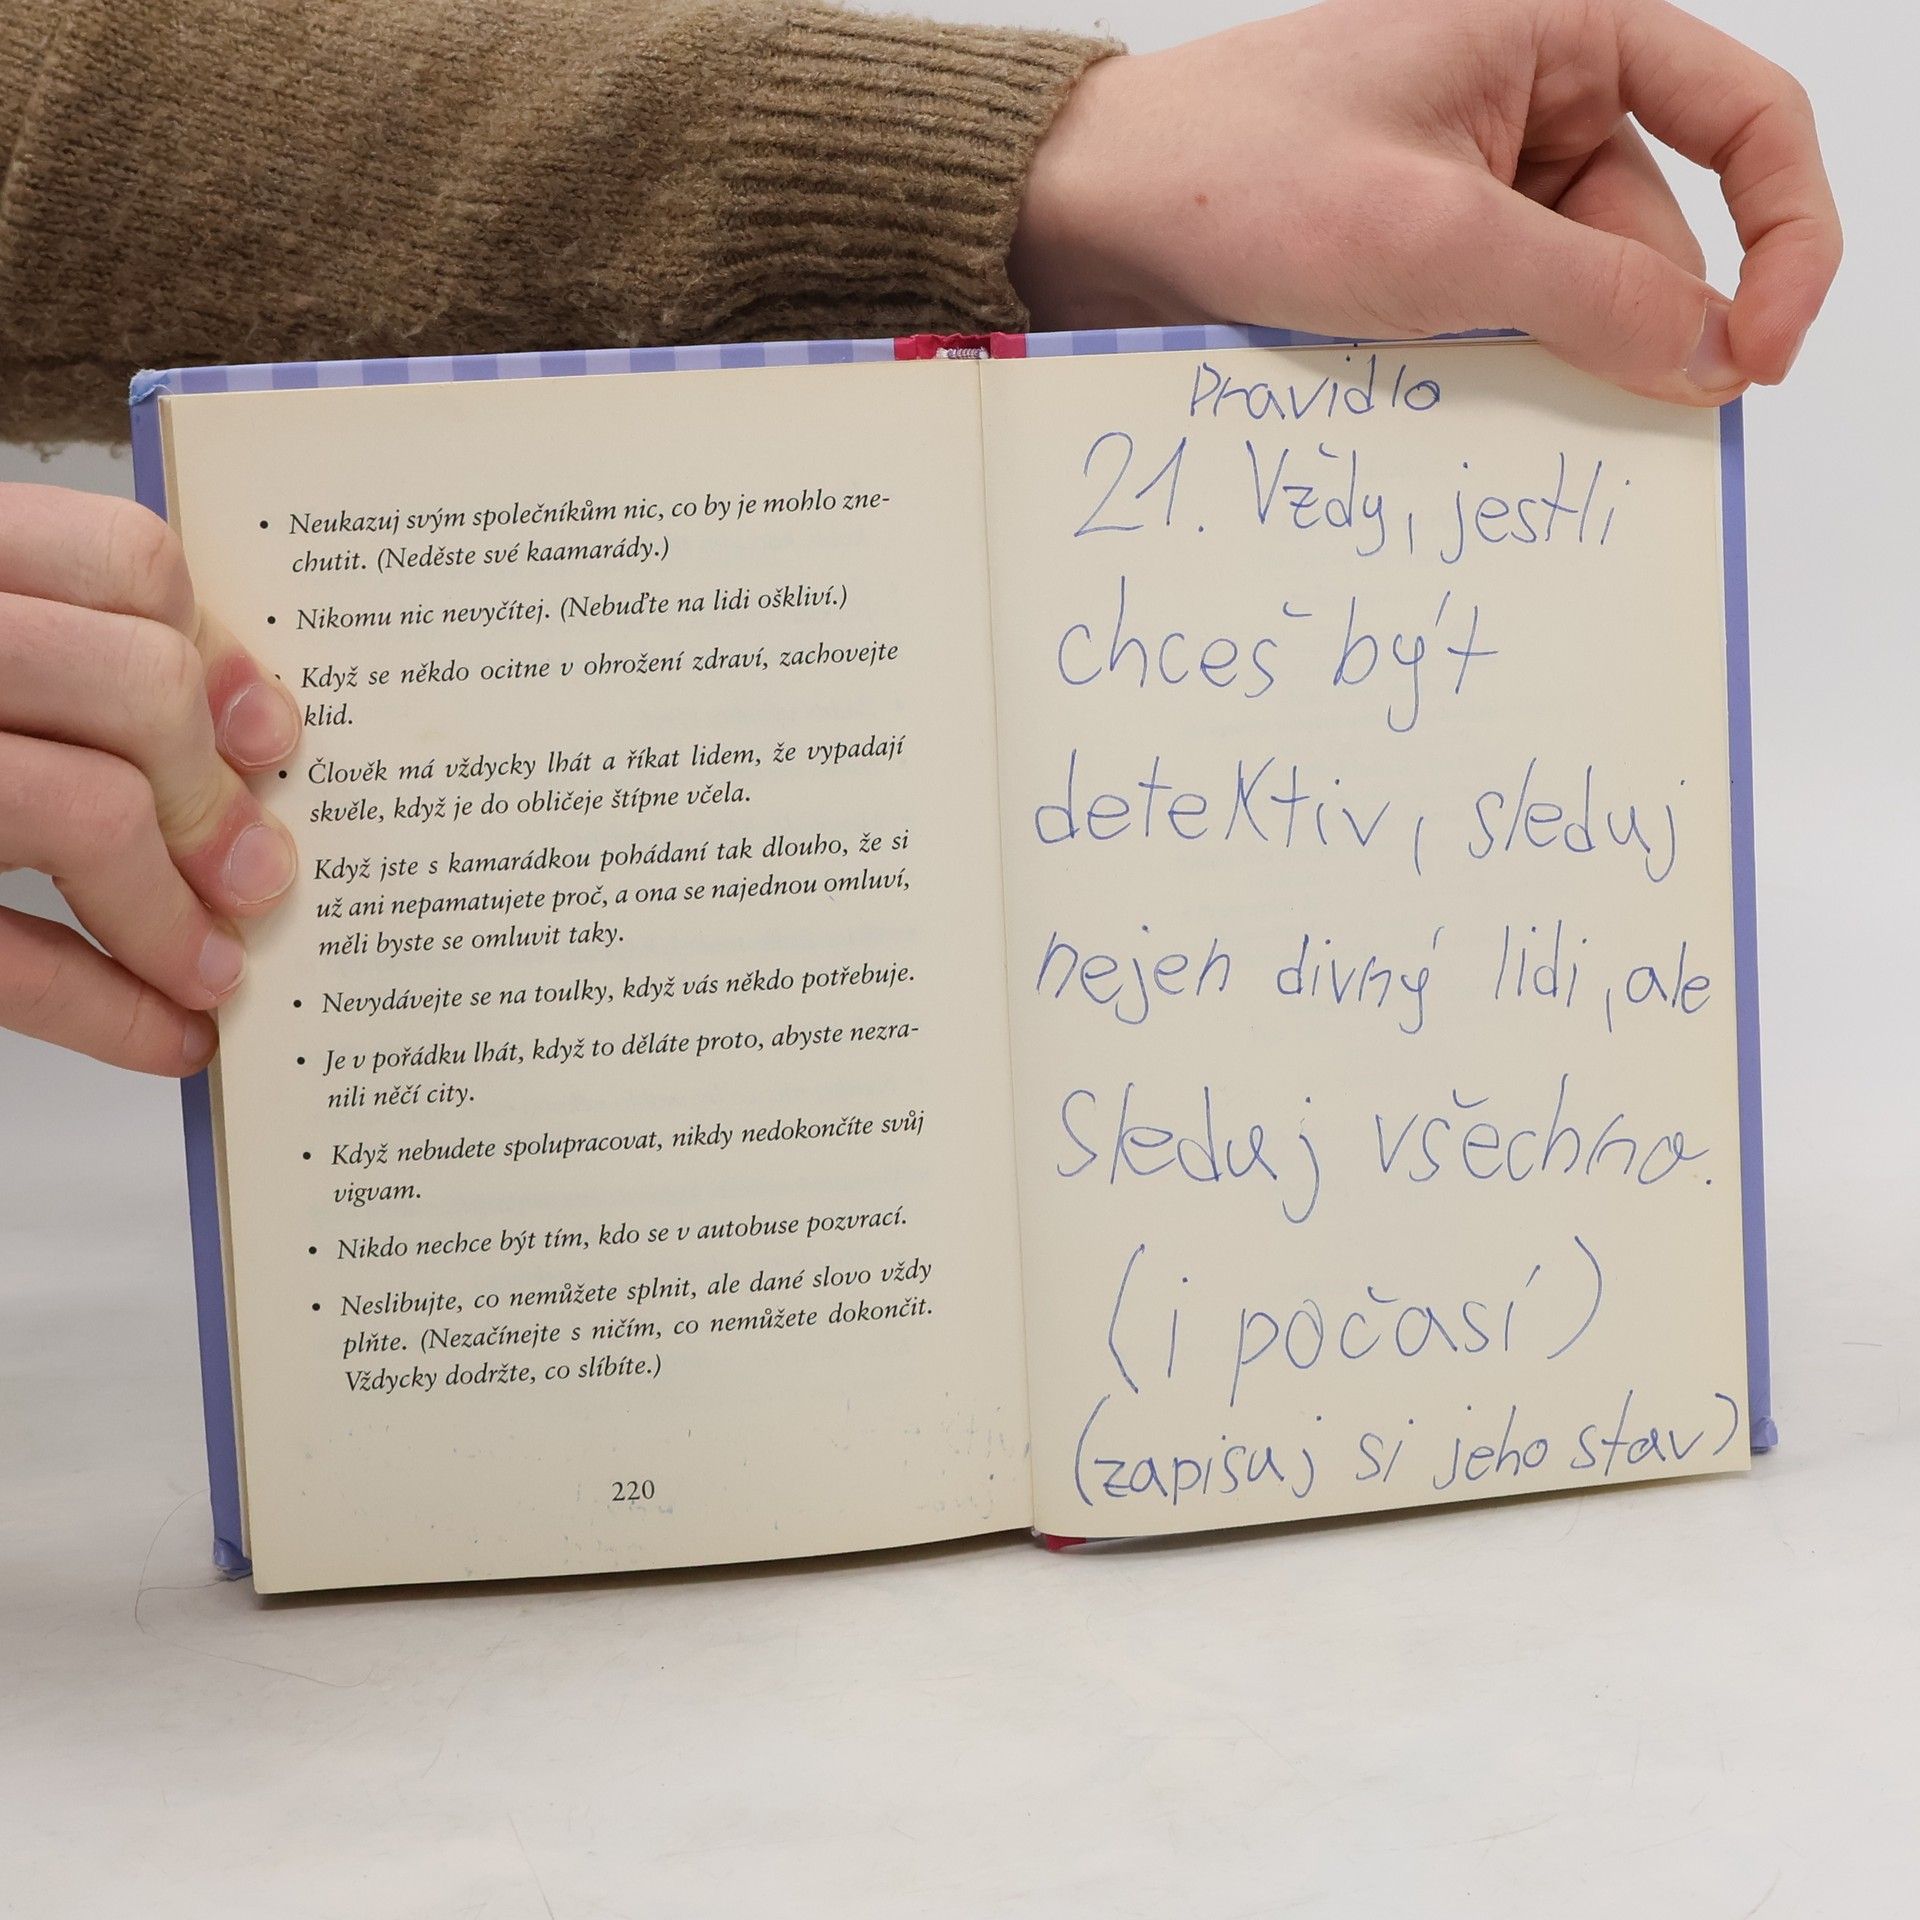 • Neukazuj svým společníkům nic, co by je mohlo zne-
chutit. (Neděste své kaamarády.)
• Nikomu nic nevyčítej. (Nebuďte na lidi oškliví.)
• Když se někdo ocitne v ohrožení zdraví, zachovejte
klid.
• Člověk má vždycky lhát a říkat lidem, že vypadají
skvěle, když je do obličeje štípne včela.
Když jste s kamarádkou pohádaní tak dlouho, že si
už ani nepamatujete proč, a ona se najednou omluví,
měli byste se omluvit taky.
• Nevydávejte se na toulky, když vás někdo potřebuje.
• Je v pořádku lhát, když to děláte proto, abyste nezra-
nili něčí city.
• Když nebudete spolupracovat, nikdy nedokončíte svůj
vigvam.
• Nikdo nechce být tím, kdo se v autobuse pozvrací.
• Neslibujte, co nemůžete splnit, ale dané slovo vždy
plňte. (Nezačínejte s ničím, co nemůžete dokončit.
Vždycky dodržte, co slíbíte.)
220
Pravidlo
21. Vždy, jestli
chceš být
detektiv, sleduj
nejen divný lidi, ale
sleduj všechno.
(i počasí)
(zapisuj si jeho stav)